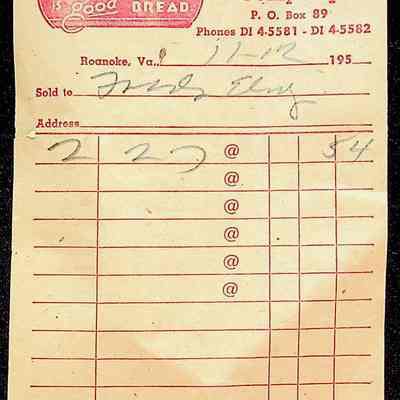 is good BREAD
P. O. Box 89
Phones DI 4-5581 - DI 4-5582
Roanoke, Va., 11-12 195
Sold to
Address
2 27 @ 54
@
@
@
@